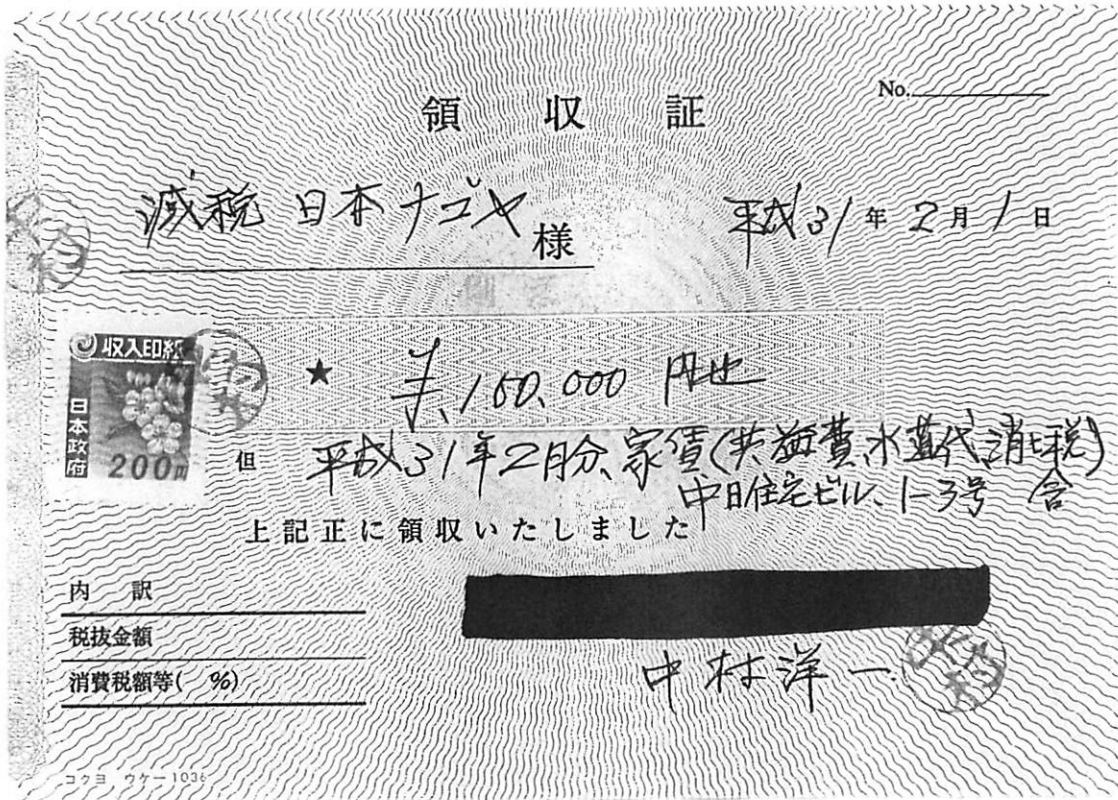 領収証
No.
減税日本ナゴヤ 様
平成31年2月1日
収入印紙
日本政府
200円
★ ¥,150,000 円也
但 平成31年2月分、家賃(共益費、水道代、消比税)
中日住宅ビル、1-3号 含
上記正に領収いたしました
内訳
税抜金額
消費税額等( %)
中村洋一
コクヨ ウケー1036